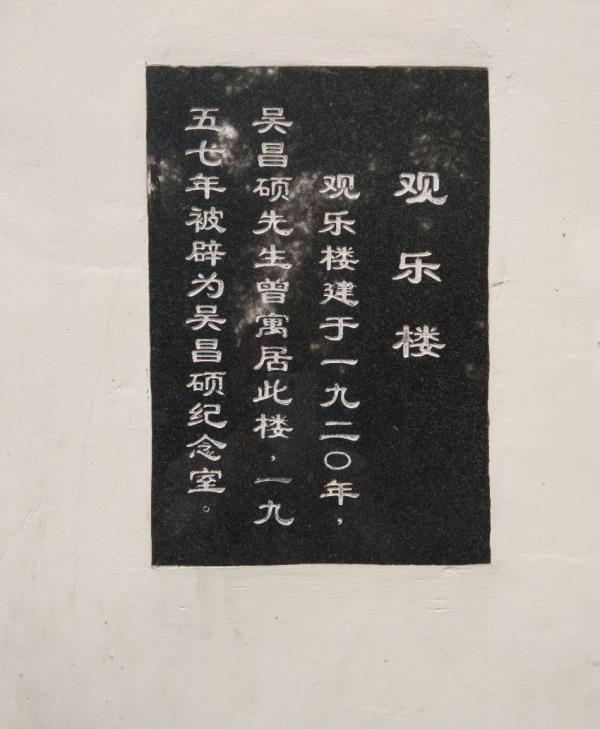 观乐楼
观乐楼建于一九二〇年，
吴昌硕先生曾寓居此楼，一九
五七年被辟为吴昌硕纪念室。